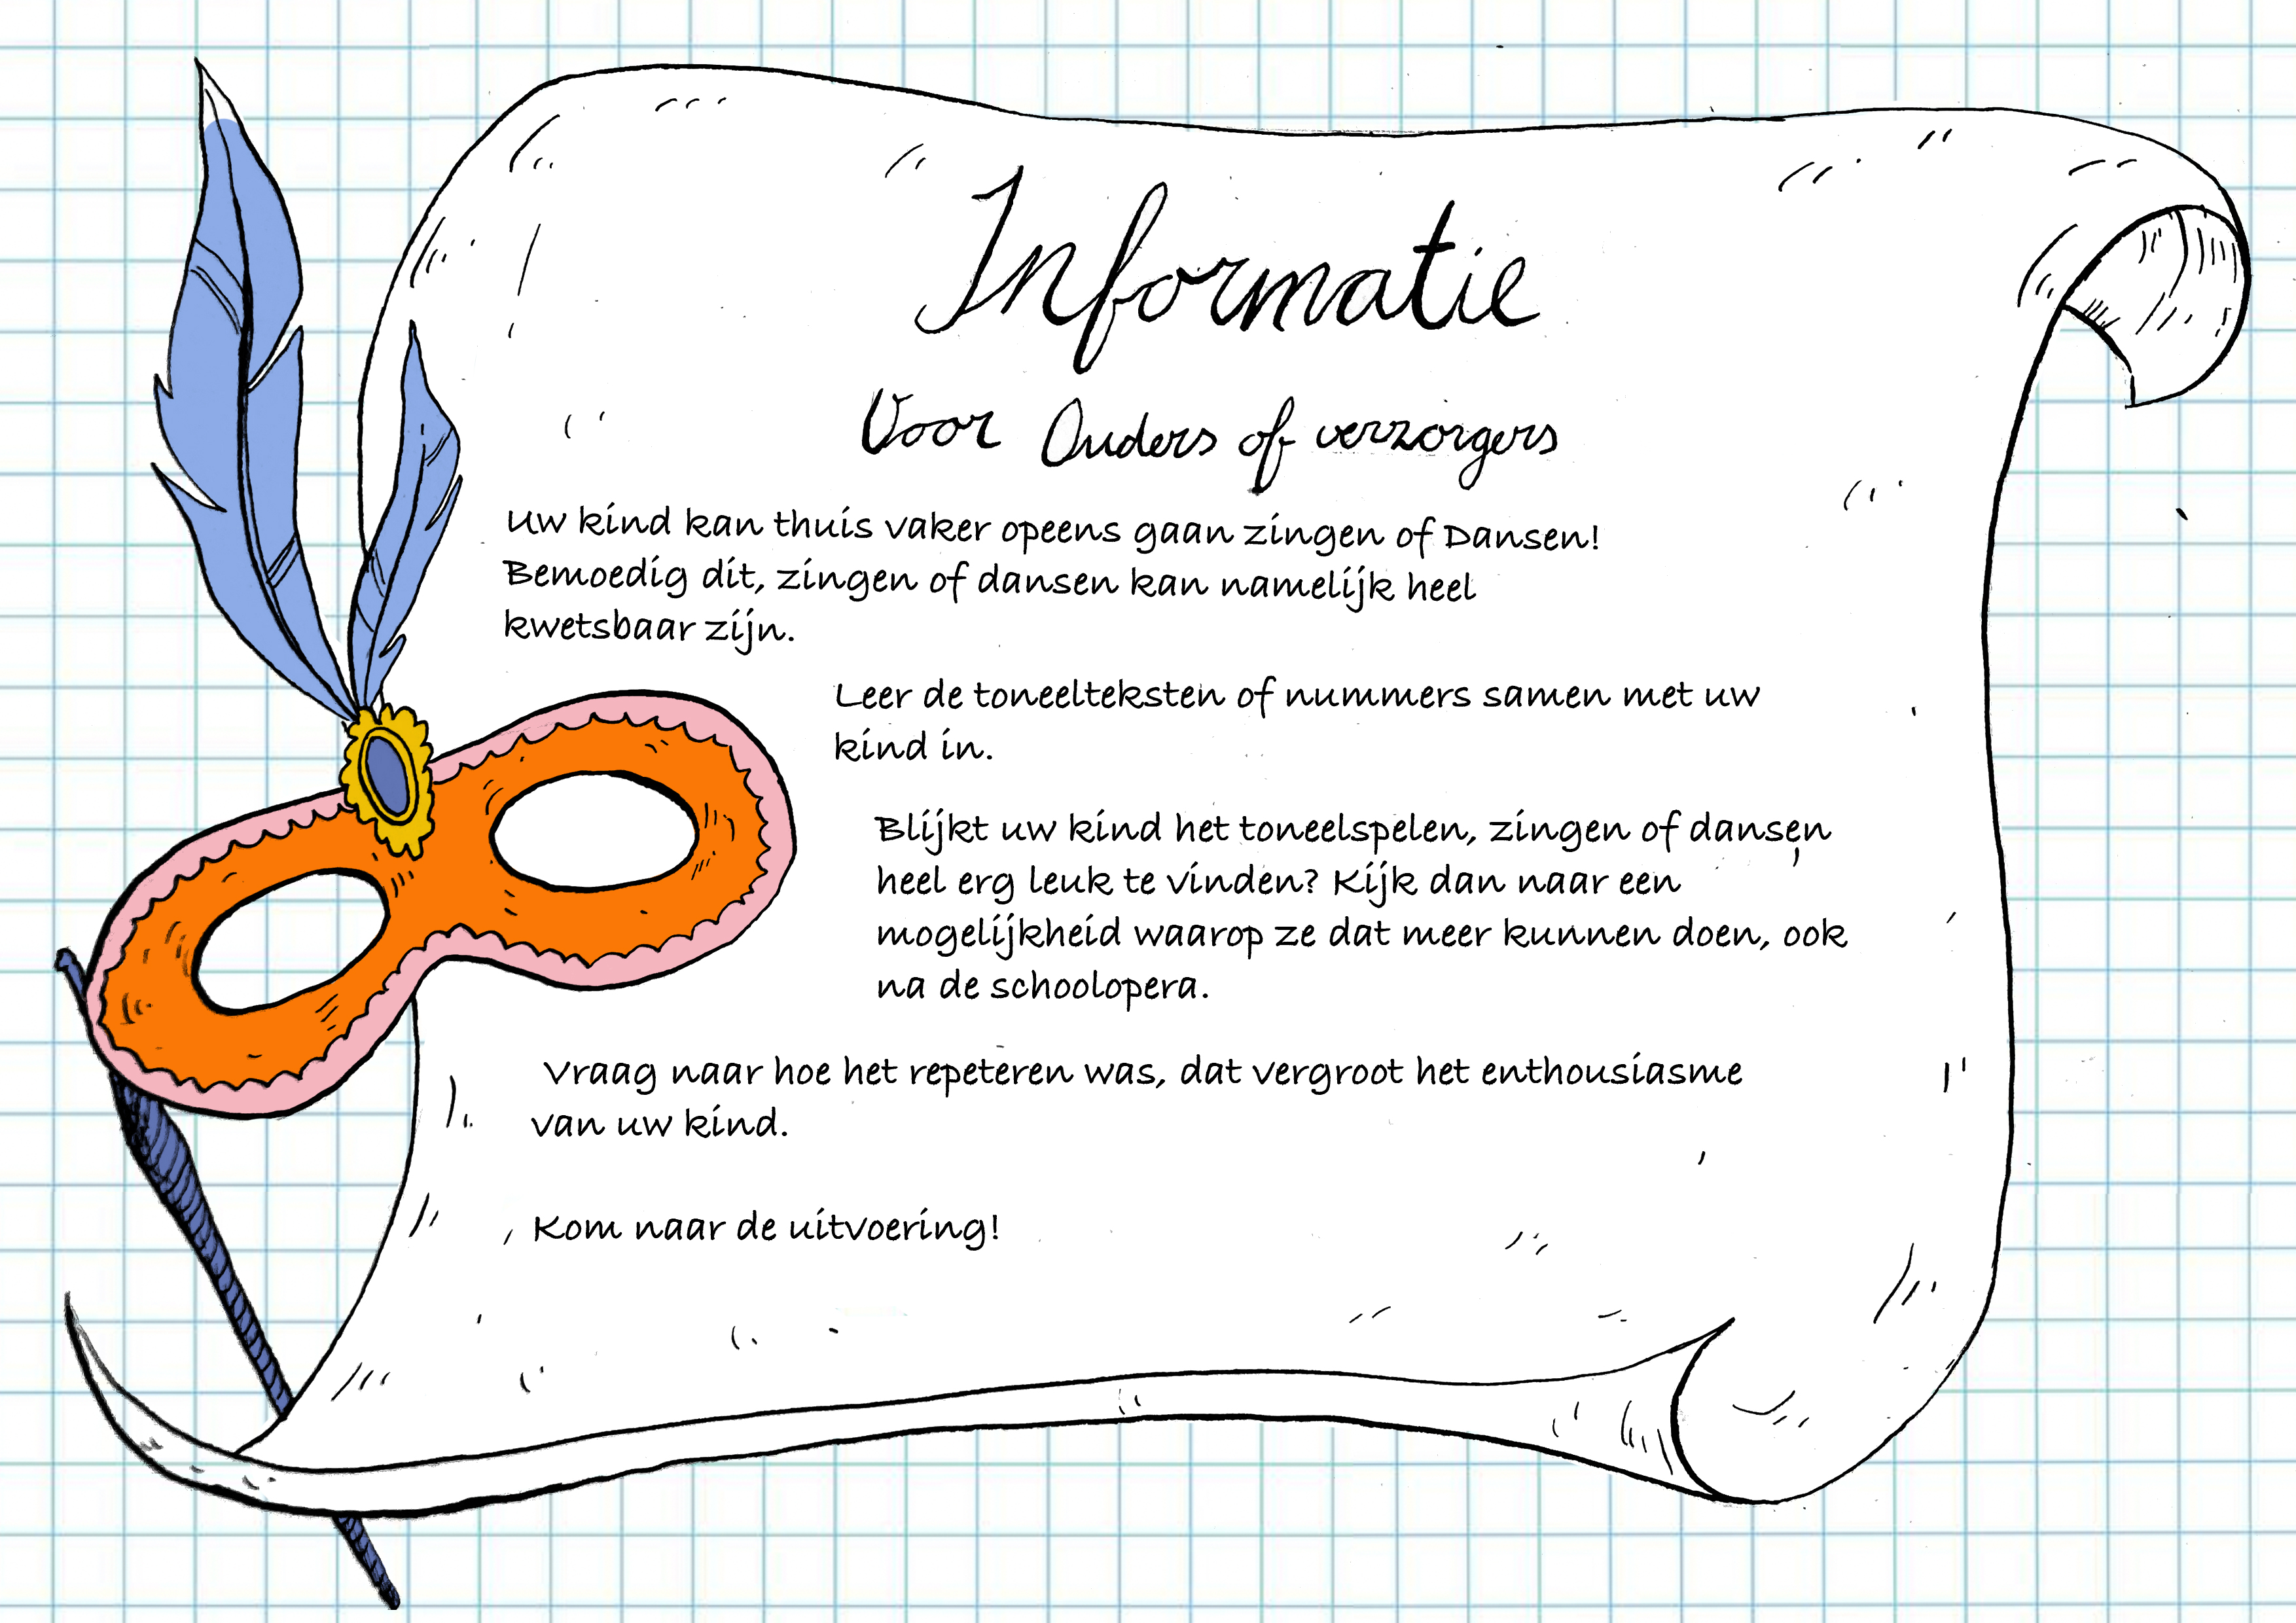 Informatie
Voor Ouders of verzorgers
Uw kind kan thuis vaker opeens gaan zingen of Dansen!
Bemoedig dit, zingen of dansen kan namelijk heel
kwetsbaar zijn.
Leer de toneelteksten of nummers samen met uw
kind in.
Blijkt uw kind het toneelspelen, zingen of dansen
heel erg leuk te vinden? Kijk dan naar een
mogelijkheid waarop ze dat meer kunnen doen, ook
na de schoolopera.
Vraag naar hoe het repeteren was, dat vergroot het enthousiasme
van uw kind.
Kom naar de uitvoering!